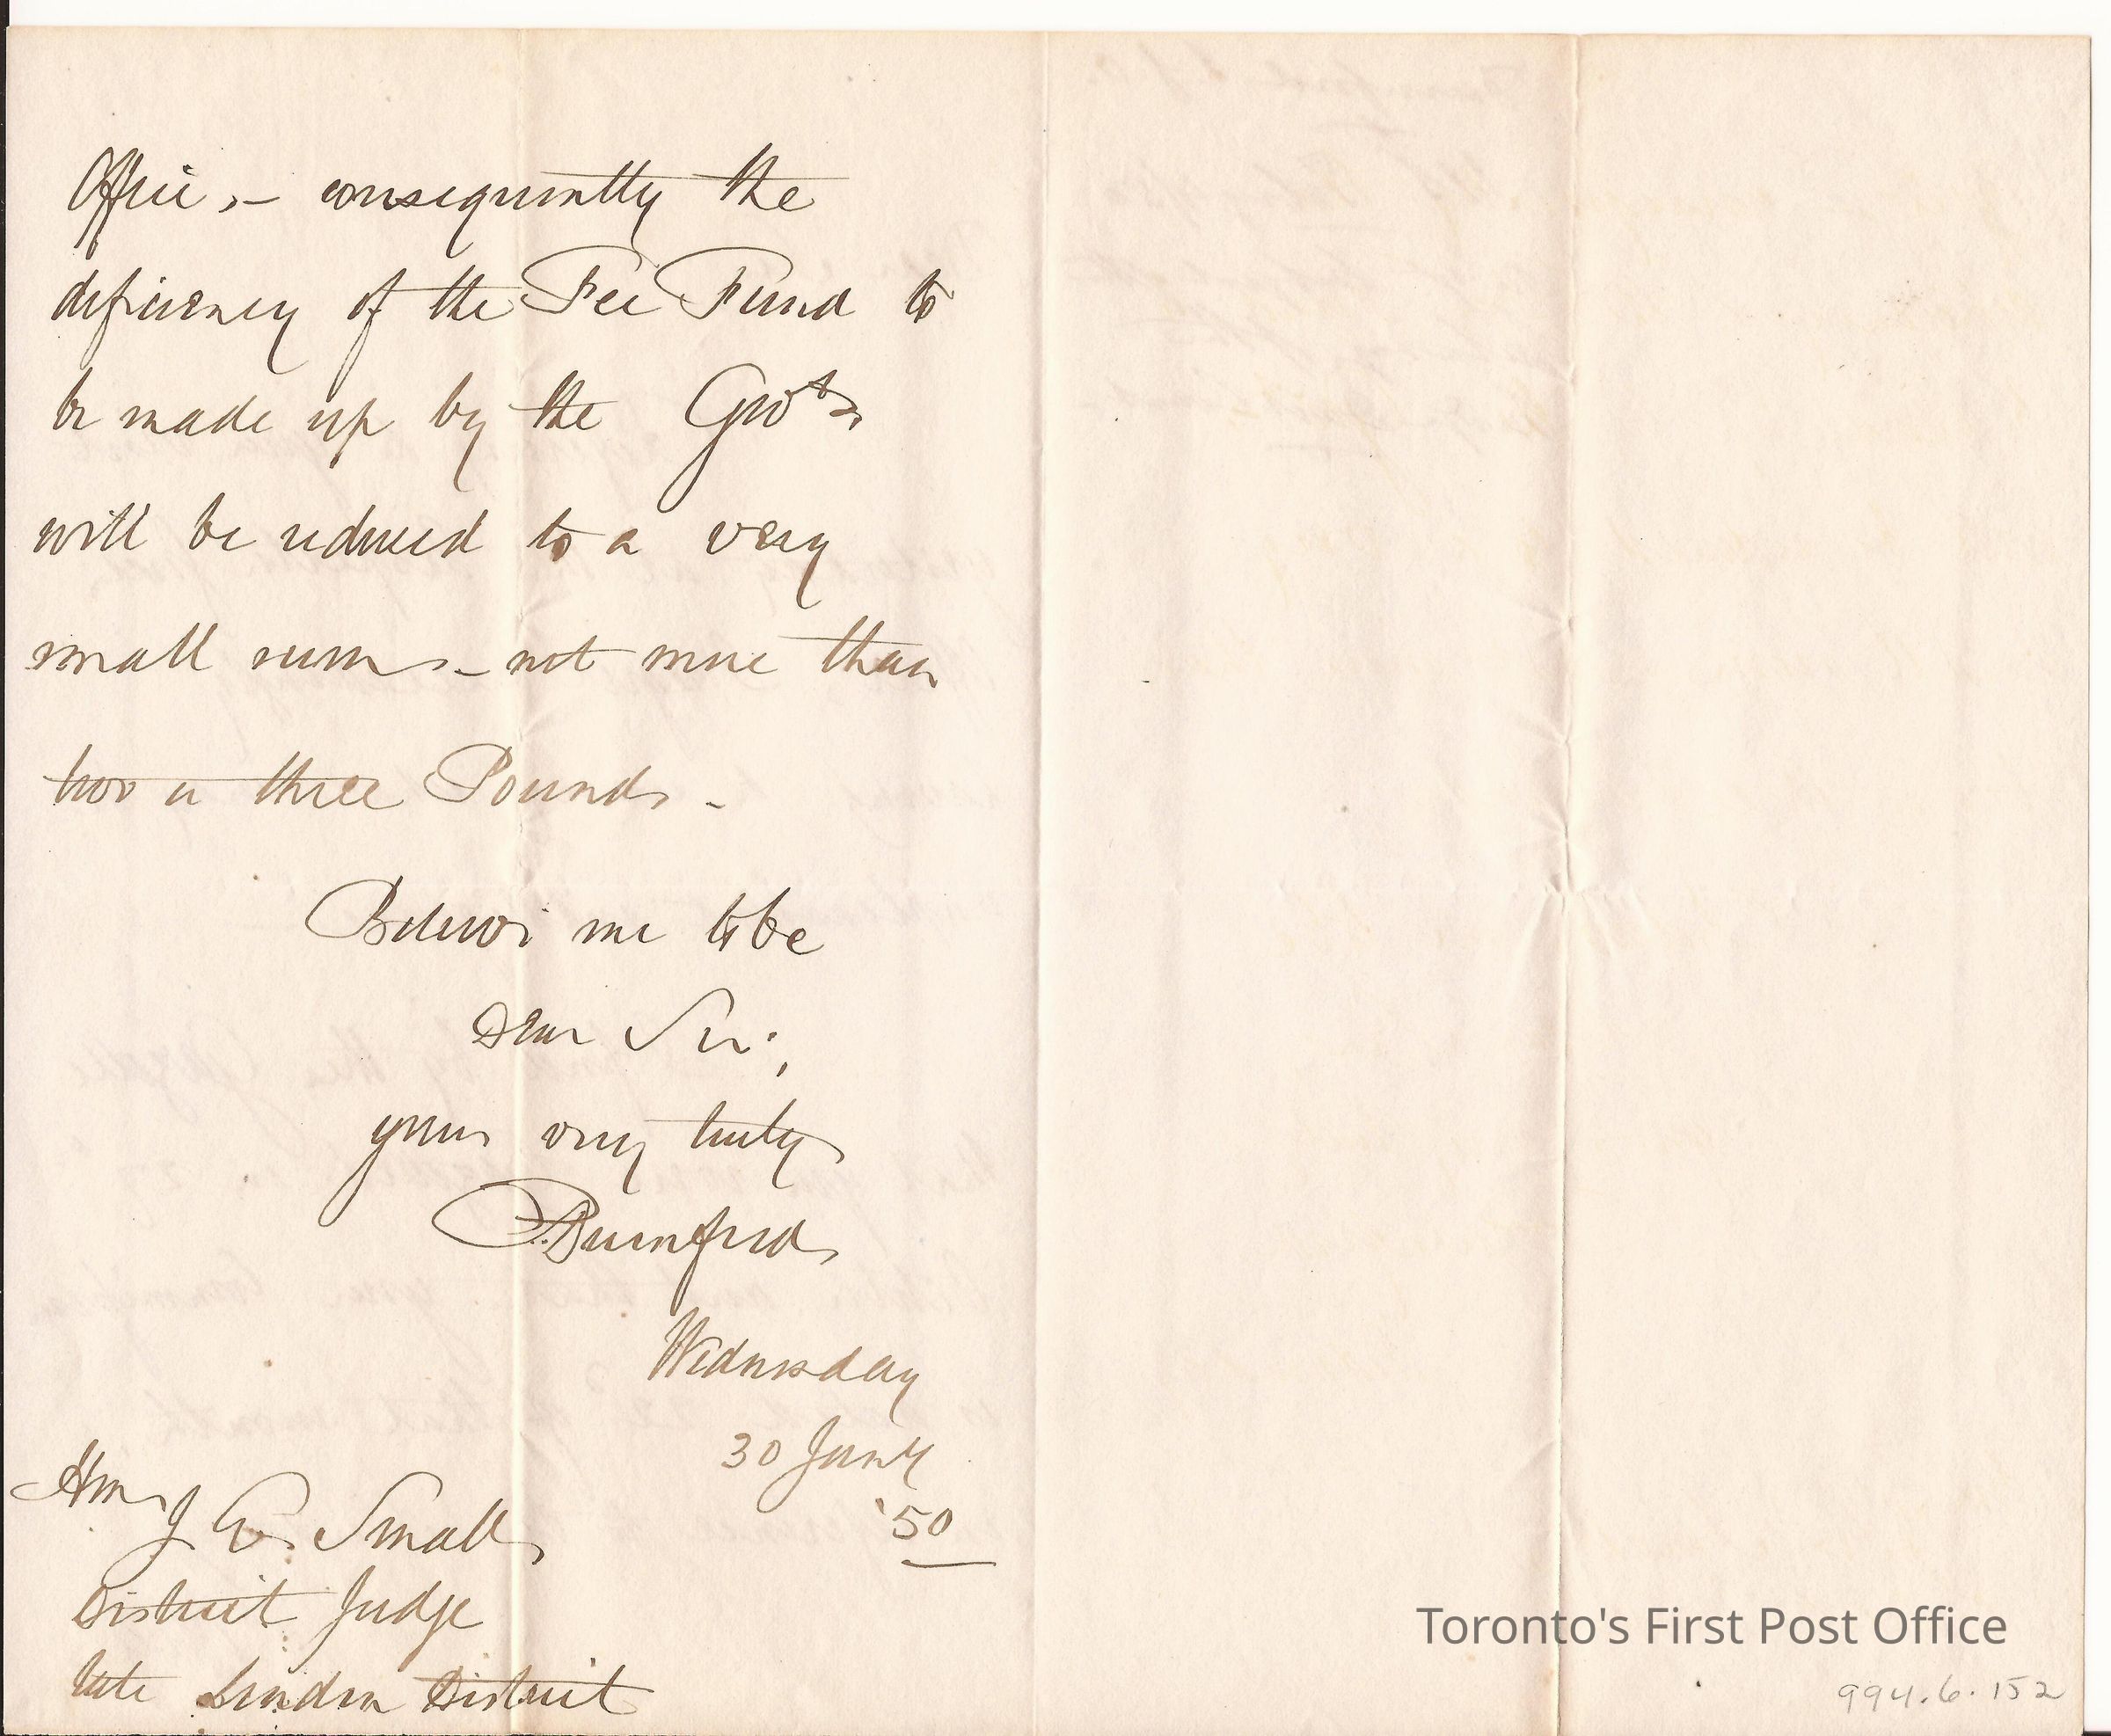 Office, – consequently the
deficiency of the Fee Fund to
be made up by the Govt,
will be reduced to a very
small sum, – not more than
two or three Pounds –
Believe me to be
Dear Sir,
yours very truly
Wednesday
30 Jany
'50
Hon J E Small
District Judge
late London District
Toronto's First Post Office
994.6.152